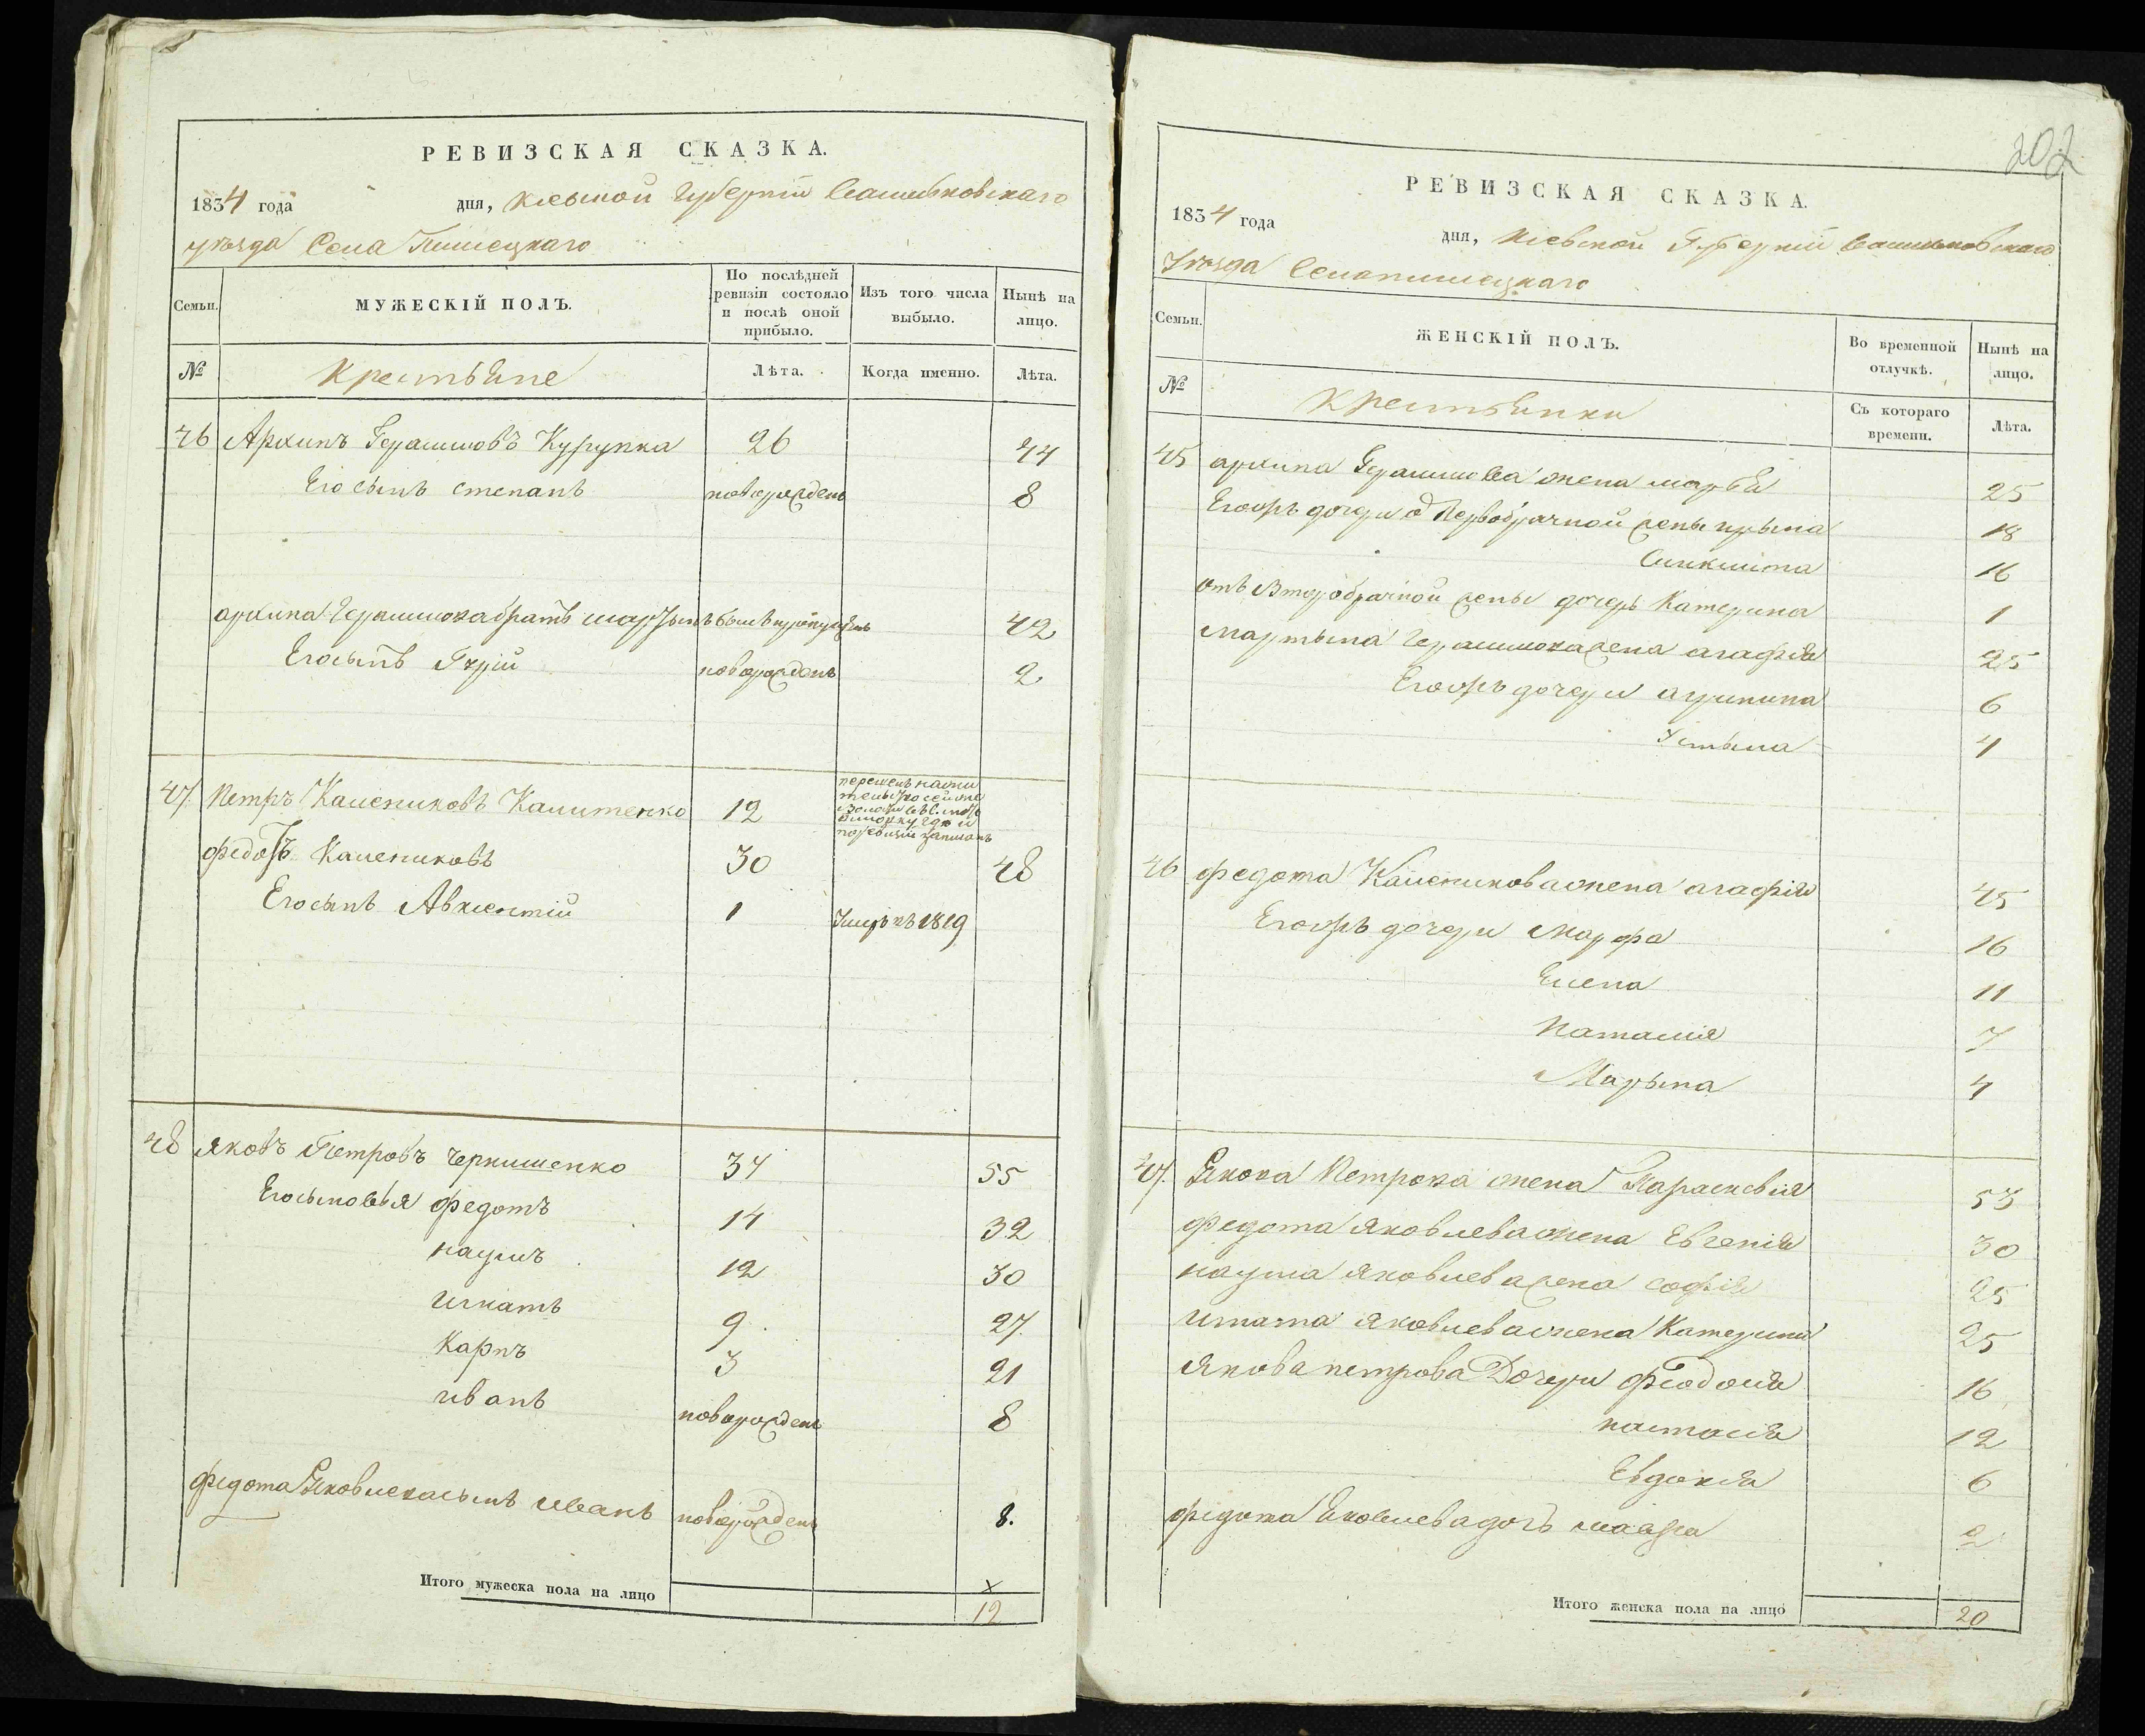 РЕВИЗСКАЯ СКАЗКА.
1834 года дня, Киевской Губернiи Василковскаго
уѣзда Села
Семьи.
МУЖЕСКІЙ ПОЛЪ.
По послѣдней ревизіи состояло и послѣ оной прибыло.
Изъ того числа выбыло.
Нынѣ на лицо.
№
Крестьяне
Лѣта.
Когда именно.
Лѣта.
46 Архипъ Герасимовъ 26 44
Его сынъ степанъ новорожденъ 8
архипа Герасимова братъ мартынъ былъ пропущенъ 42
Его сынъ новорожденъ 2
47 Петръ Калениковъ 12
федотъ Калениковъ 30 48
Его сынъ Авксентiй 1 Умръ въ 1819
48 Яковъ Петровъ Чернишенко 37 55
Его сыновья федотъ 14 32
наумъ 12 30
игнатъ 9 27
Карпъ 3 21
иванъ новорожденъ 8
федота Яковлева сынъ иванъ новорожденъ 8.
Итого мужеска пола на лицо
х
12
202
РЕВИЗСКАЯ СКАЗКА.
1834 года дня, Киевской Губернiи Василковскаго
Уѣзда Села
Семьи.
ЖЕНСКІЙ ПОЛЪ.
Во временной отлучкѣ.
Нынѣ на лицо.
№
Крестьянки
Съ котораго времени.
Лѣта.
45 архипа Герасимова жена марья 25
Егожъ дочери 18
16
отъ второбрачной жены дочерь Катерина 1
мартына Герасимова жена агафiя 25
Егожъ дочери агрипина 6
Устына 4
46 федота Каленикова жена агафiя 45
Егожъ дочери марфа 16
Елена 11
Наталiя 7
Марына 4
47. Якова Петрова жена Параскевiя 53
федота яковлева жена Евгенiя 30
наума яковлева жена софiя 25
игната яковлева жена Катерина 25
якова петрова Дочери феодосiя 16
настасiя 12
Евдокiя 6
федота Яковлева дочь 2
Итого женска пола на лицо
20